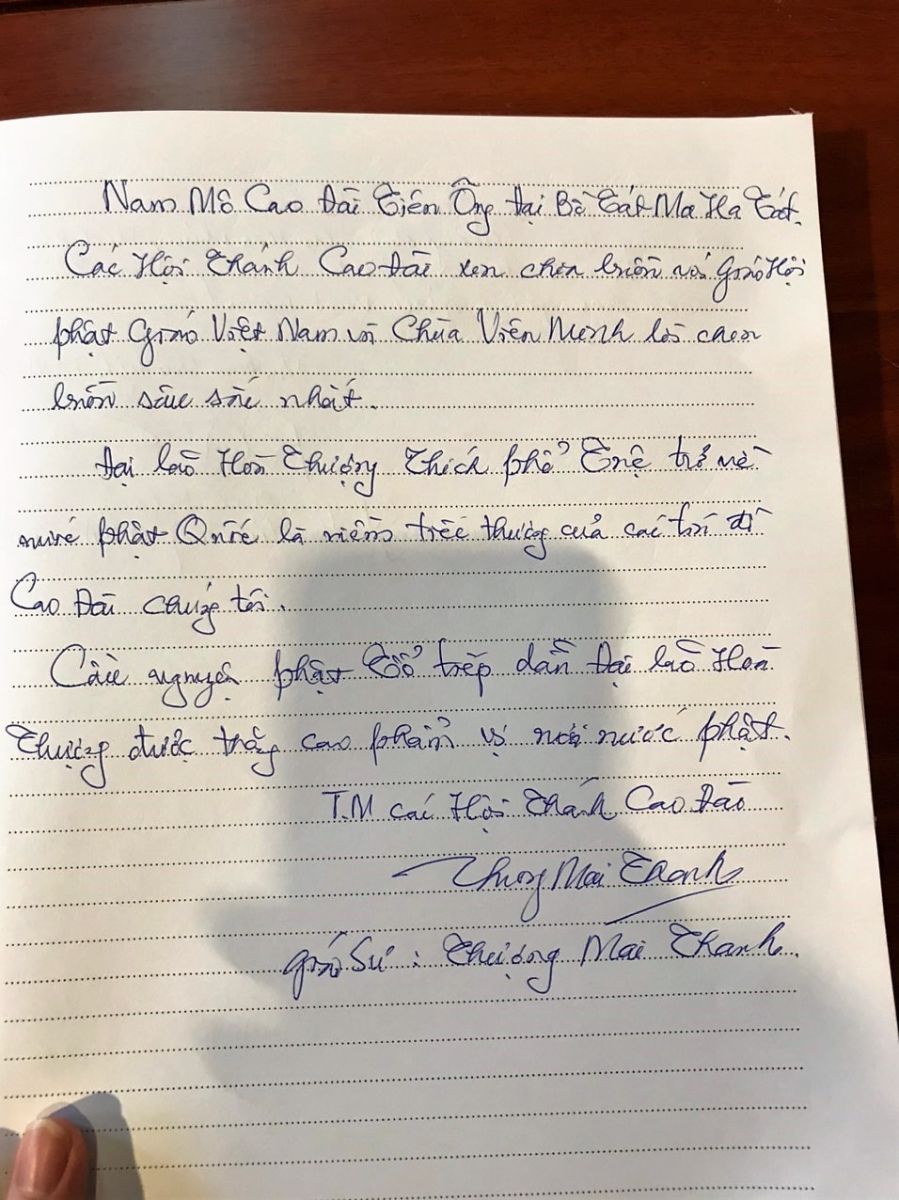 Nam Mô Cao Đài Tiên Ông Đại Bồ Tát Ma Ha Tát.
Các Hội Thánh Cao Đài xin chia buồn với Giáo Hội
phật Giáo Việt Nam và Chùa Viên Minh lời chia
buồn sâu sắc nhất.
Đại lão Hoà Thượng Thích phổ Tuệ trở về
nước phật Quốc là niềm tiếc thương của các tín đồ
Cao Đài chúng tôi.
Cầu nguyện phật Tổ tiếp dẫn Đại lão Hoà
Thượng được thăng cao phẩm vị nơi nước phật.
T.M các Hội Thánh Cao Đài
Thượng Mai Thanh
Giáo Sư : Thượng Mai Thanh.